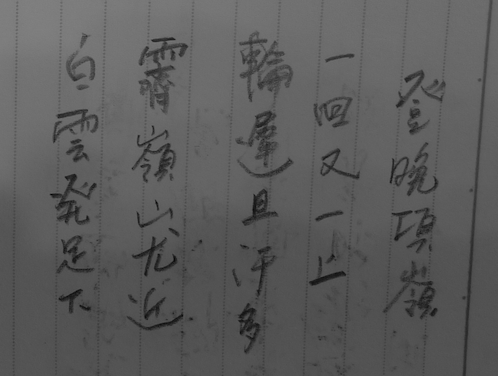 登晚項嶺
一回又一上
輪遲且汗多
霽嶺山尤近
白雲發足下